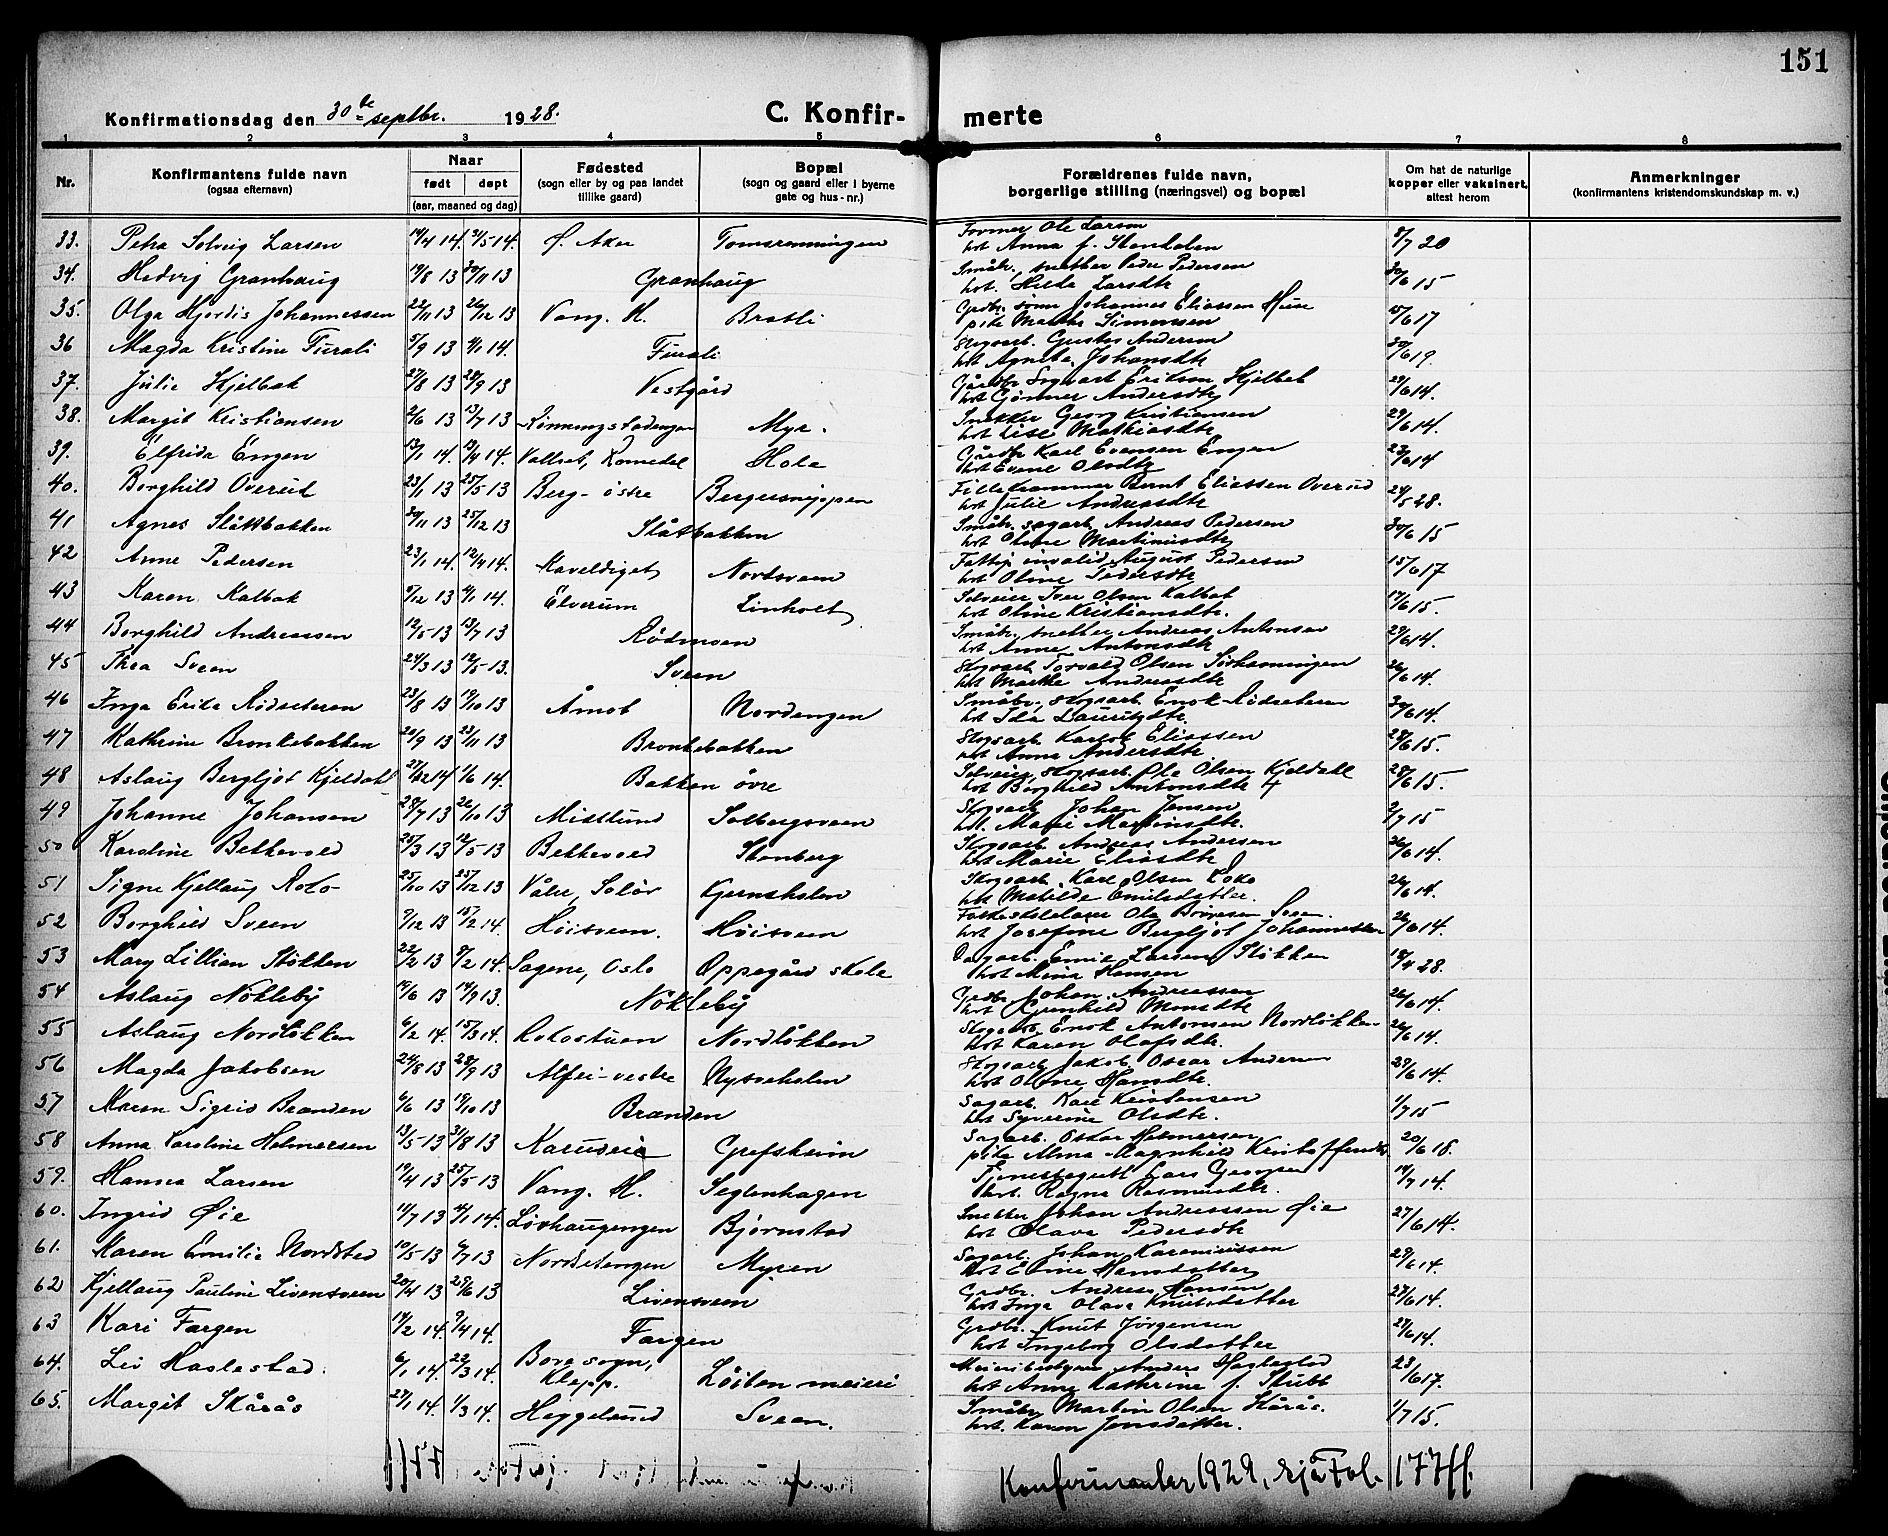 151
Konfirmationsdag den 30te septbr. 1928.
C. Konfir- merte
1 2 3 4 5 6 7 8
Nr.
Konfirmantens fulde navn
(ogsaa efternavn)
Naar
født døpt
(aar, maaned og dag)
Fødested
(sogn eller by og paa landet
tillike gaard)
Bopæl
(sogn og gaard eller i byerne
gate og hus-nr.)
Forældrenes fulde navn,
borgerlige stilling (næringsvei) og bopæl
Om hat de naturlige
kopper eller vaksinert,
attest herom
Anmerkninger
(konfirmantens kristendomskundskap m. v.)
33. Petra Solveig Larsen Ø. Aker Ole Larsen
Anna f. 8/7 20
34. Hedvig Granhaug 19/8 13 30/11 13 Granhaug Småbr., snekker Peder Pedersen
hot. Hilda Larsdtr 30/6 15
35. Olga Hjørdis Johannessen 22/11 13 26/12 13 Vang. H. Bratli Johannes Eliassen
pike Marthe Simensen 15/6 17
36 Magda Kristine Furali 5/9 13 4/1 14. Furali Skogsarb. Gustav Andersen
hot Agnete Johansdtr 30/6 19.
37. Julie Skjelbak 27/8 13 28/9 13 Vestgård Gårdbr. Sigvart Eriksen Skjelbak
hot Gunner Andersdtr 29/6 14.
38. Margit Kristiansen 2/6 13 13/7 13 Myr. Snekker Georg Kristiansen
hot Lise Mathiasdtr 29/6 14.
39. Elfrida Engen 13/1 14. 13/4 14. Vallset, Romedal Hole Gårdbr Karl Evensen Engen
hot Evene Olsdtr 23/6 14
40. Borghild Overud 23/1 13 25/5 13 Berg-østre Bernt Eliassen Overud
hot Julie Andreasdtr 24/5 28.
41 Agnes Slåttbakken 30/11 13 25/12 13 Slåtbakken Småbr. sagarb. Andreas Pedersen
hot Oline Martinusdtr 30/6 15
42 Anne Pedersen 23/1 14. 12/4 14. Kaveldiget Nordsveen Fattig invalid August Pedersen
hot Oline Pedersdtr 15/6 17
43 Karen Kalbak 5/12 13 4/1 14. Elverum Linholt Selveier Iver Olsen Kalbak
hot Oline Kristiansdtr. 17/6 15.
44 Borghild Andreassen 12/5 13 13/7 13 Rødmoen Småbr. snekker Andreas Antonsen
hot Anne Antonsdtr 29/6 14.
45 Thea Sveen 24/3 13 12/5 13. Sveen Skogsarb Torvald Olsen
hot Marthe Andreasdtr 26/6 14.
46 Inga Erika Rødseteren 23/8 13 19/10 13 Åmot Nordengen Småbr., skogsarb. Enok Rødseteren
hot Ida Lauritzdtr. 30/6 14.
47 Kathrine Bronkebakken 20/9 13 23/11 13 Bronkebakken Skogsarb. Karlot Eliassen
hot Anna Andersdtr 28/6 15.
48 Aslaug Bergljot Kjeldahl 1/6 14. Bakken øvre Selveier, skogsarb. Ole Olsen Kjeldahl
hot Borghild Antonsdtr 28/6 15.
49 Johanne Johansen 28/7 13 26/10 13 Mislund Solbergsveen Skogsarb Johan Jensen
hot. Mari Martinsdtr. 2/7 15
50 Karoline Bekkevold 25/3 13 12/5 13 Bekkevold Stenberg Skogsarb Andreas Andersen
hot Marie Eliasdtr 26/6 14.
51 Signe Kjellaug Roko 25/10 13 25/12 13 Våler, Solør Skogsarb. Karl Olsen Roko
hot Matilde Emilsdatter. 26/6 14.
52 Borghild Sveen 9/12 13 15/2 14. Høisveen. Høisveen Ole Sveen.
hot Josefine Bergljot Johannessen 26/6 14.
53 Mary Lillian Støkken 22/2 13 8/2 14. Sagene, Oslo Oppegård skole Dagarb. Emil Larsen Støkken
hot Mina Hansen 18/4 28.
54 Aslaug Nøkleby 14/6 13 14/9 13. Nøkleby Grdbr. Johan Andreassen
hot Gunhild Monsdtr 26/6 14.
55 Aslaug Nordløkken 6/2 14. 15/3 14. Rokostuen Nordløkken Skogsarb. Enok Antonsen Nordløkken
hot Karen Olafsdtr. 26/6 14.
56 Magda Jakobsen 24/8 13 28/9 13 Alfei-vestre Nyssehalen Skogsarb Jakob Oscar Andersen
hot Oline Hansdtr. 29/6 14.
57. Maren Sigrid Brænden 6/6 13 19/10 13 Brænden Sagarb. Karl Kristensen
hot Syverine Olsdtr. 1/7 15
58 Anna Karoline Helmersen 13/5 13 31/8 13 Karudeie Grefsheim Sagarb. Oskar Helmersen
pike Alma Ragnhild 20/6 18.
59. Hansea Larsen 19/4 13 25/5 13 Vang. H. Seglenhagen Lars Georgsen
hot. Ragna Rasmusdtr. 14/7 14.
60. Ingrid Øie 11/7 13 Løvhaugengen Bjørnstad Snekker Johan Andreassen Øie
hot Olava Pedersdtr 27/6 14.
61. Karen Emilie Nordstad 10/5 13 6/7 13 Nordsetengen Myren Sagarb. Johan
hot Eline Hansdatter 29/6 14.
62 Kjellaug Pauline Livensveen 20/4 13 29/6 13 Livensveen Grdbr. Andreas Hansen
hot Inga Olava Knutsdatter 27/6 14.
63 Kari Fargen 14/2 14. 9/4 14. Fargen Grdbr. Knut Jørgensen
hot Ingeborg Olsdatter 29/6 14.
64. Liv Haslestad 6/1 14. 22/3 14. Bore sogn,
Klepp. Løiten meieri Meieribestyrer Anders Haslestad
hot Anne Kathrine f. Skutt 23/6 17.
65. Margit Skårås 27/1 14. 1/3 14. Heggelund Sveen. Småbr Martin Olsen Skårås.
hot. Karen Jensdatter. 1/7 15.
Konfirmanter 1929, sjå Fol. 177ff.